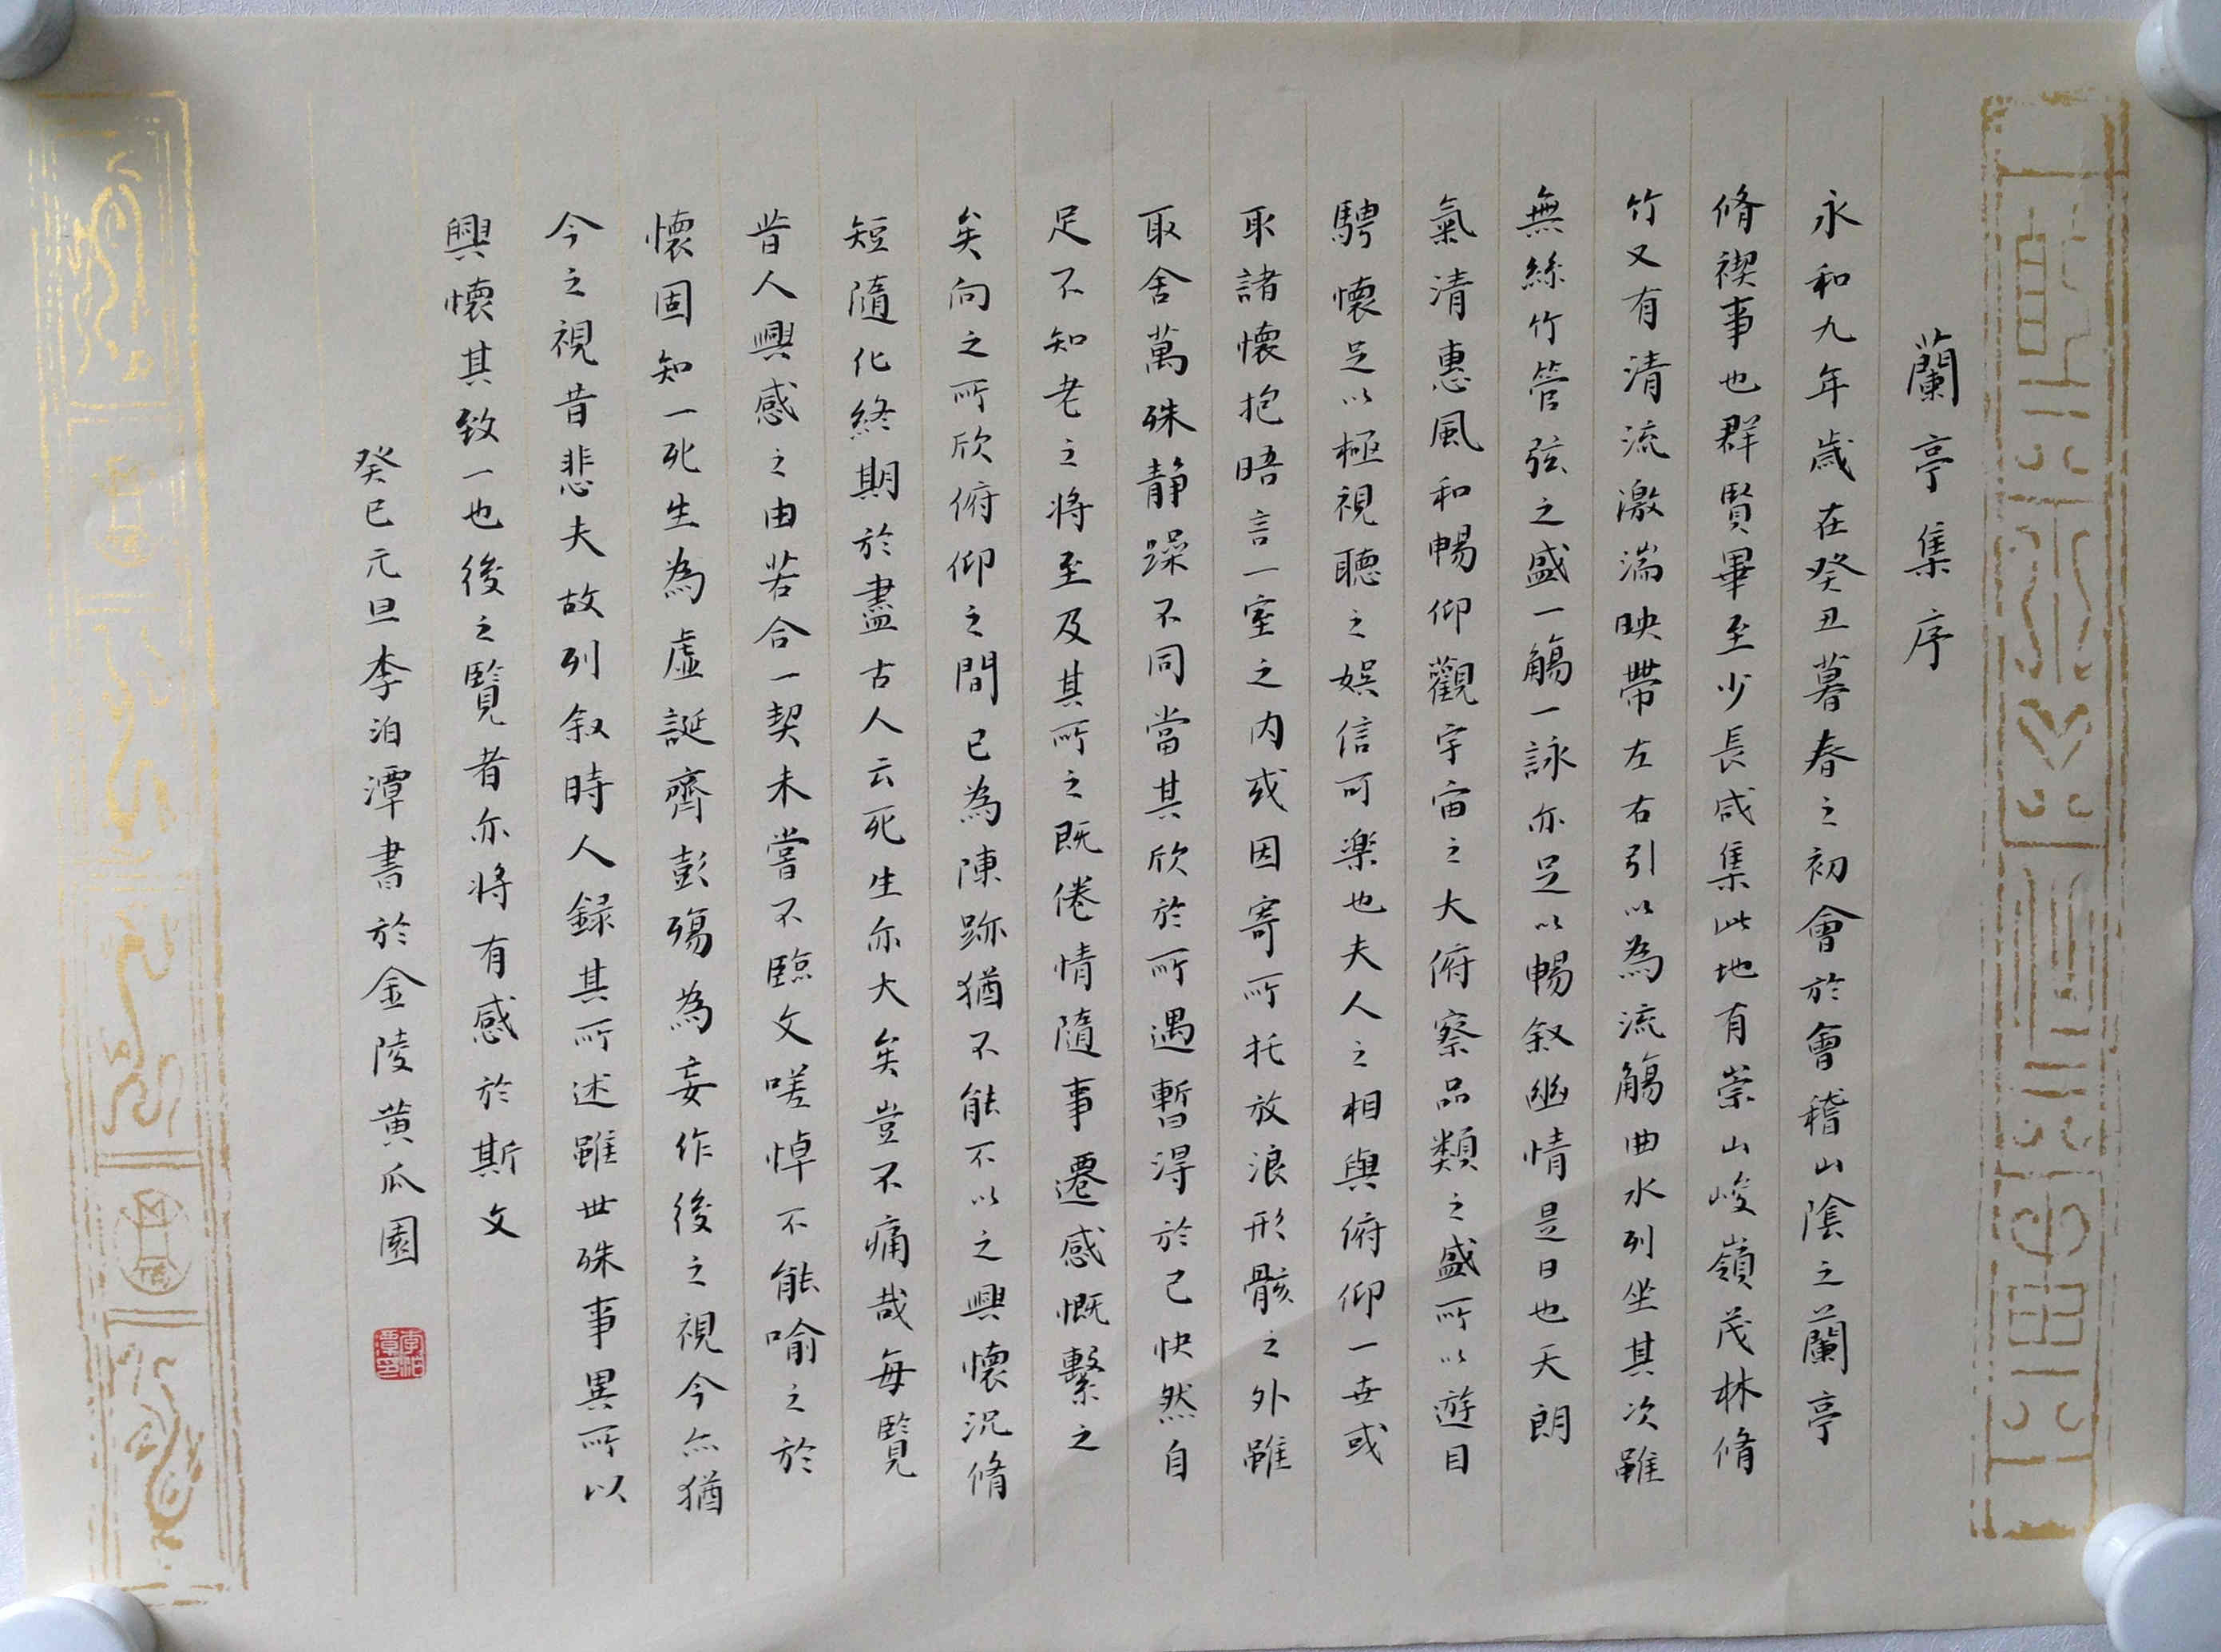 蘭亭集序
永和九年歲在癸丑暮春之初會於會稽山陰之蘭亭
脩禊事也群賢畢至少長咸集此地有崇山峻嶺茂林脩
竹又有清流激湍映帶左右引以為流觴曲水列坐其次雖
無絲竹管弦之盛一觴一詠亦足以暢叙幽情是日也天朗
氣清惠風和暢仰觀宇宙之大俯察品類之盛所以遊目
騁懷足以極視聽之娛信可楽也夫人之相與俯仰一世或
取諸懷抱晤言一室之内或因寄所托放浪形骸之外雖
取舍萬殊静躁不同當其欣於所遇暫得於己快然自
足不知老之將至及其所之既倦情隨事遷感慨繫之
矣向之所欣俯仰之間已為陳跡猶不能不以之興懷況脩
短隨化終期於盡古人云死生亦大矣豈不痛哉每覽
昔人興感之由若合一契未嘗不臨文嗟悼不能喻之於
懷固知一死生為虛誕齊彭殤為妄作後之視今亦猶
今之視昔悲夫故列叙時人録其所述雖世殊事異所以
興懷其致一也後之覽者亦將有感於斯文
癸巳元旦李泊潭書於金陵黄瓜園
李泊潭印